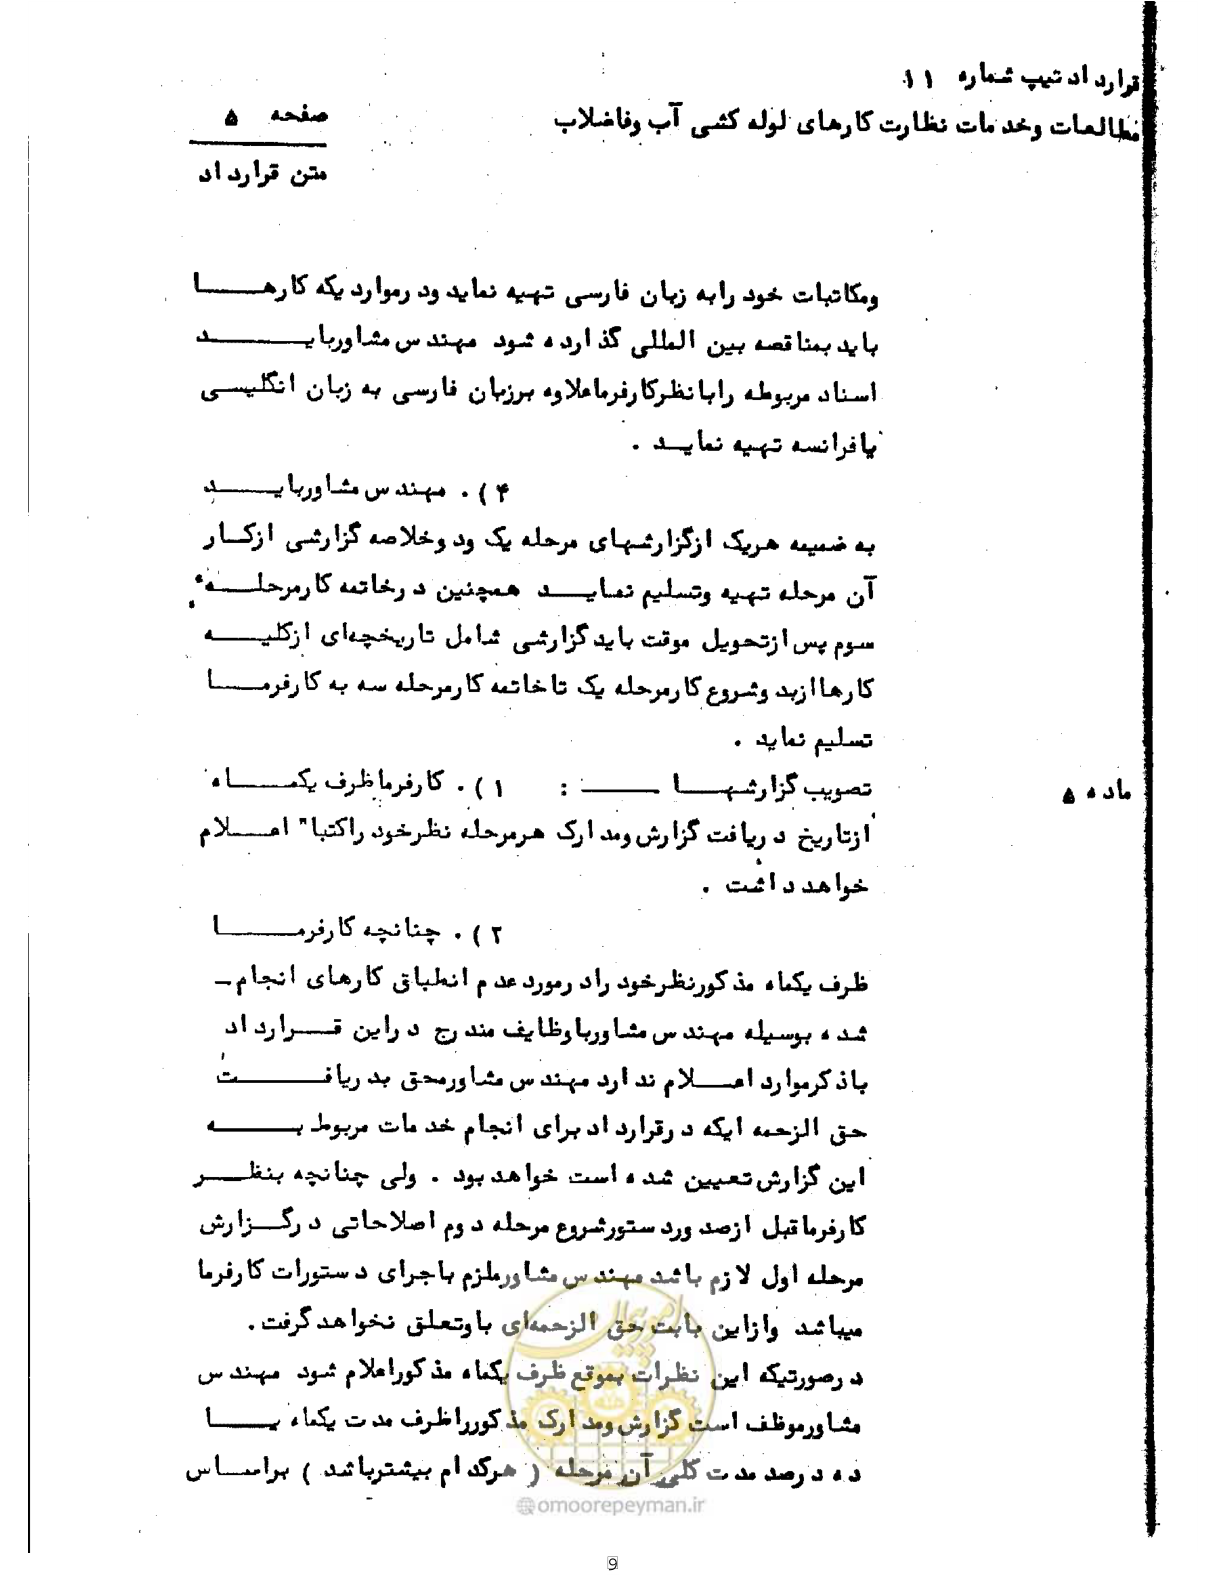 قرارداد تیپ شماره ۱۱
مطالعات وخدمات نظارت کارهای لوله کشی آب وفاضلاب
صفحه ۵
متن قرارداد
ومکاتبات خود رابه زبان فارسی تهیه نماید ودرمواردیکه کارهــا
باید بمناقصه بین المللی گذارده شود مهندس مشاوربایــد
اسناد مربوطه رابانظرکارفرماعلاوه برزبان فارسی به زبان انگلیسی
یافرانسه تهیه نمایــد .
۴) . مهندس مشاوربایــد
به ضمیمه هریک ازگزارشهای مرحله یک ودو خلاصه گزارشی ازکــار
آن مرحله تهیه وتسلیم نمایــد همچنین درخاتمه کارمرحلــه
سوم پس ازتحویل موقت بایدگزارشی شامل تاریخچه‌ای ازکلیــه
کارهاازبد وشروع کارمرحله یک تاخاتمه کارمرحله سه به کارفرمــا
تسلیم نماید .
ماده ۵
تصویب گزارشهــا ـــــ : ۱) . کارفرماظرف یکمــاه
ازتاریخ دریافت گزارش ومدارک هرمرحله نظرخود راکتبا" اعــلام
خواهدداشت .
۲) . چنانچه کارفرمــا
ظرف یکماه مذکورنظرخود رادرمورد عدم انطباق کارهای انجام ـ
شده بوسیله مهندس مشاورباوظایف مندرج دراین قــرارداد
باذکرموارد اعــلام ندارد مهندس مشاورمحق بدریافــت
حق الزحمه ایکه درقراردادبرای انجام خدمات مربوط بــه
این گزارش تعیین شده است خواهدبود . ولی چنانچه بنظــر
کارفرماقبل ازصدوردستورشروع مرحله دوم اصلاحاتی درگــزارش
مرحله اول لازم باشد مهندس مشاورملزم باجرای دستورات کارفرما
میباشد وازاین بابت حق الزحمه‌ای باوتعلق نخواهدگرفت.
درصورتیکه این نظرات بموقع ظرف یکماه مذکوراعلام شود مهندس
مشاورموظف است گزارش ومدارک مذکورراظرف مدت یکماه یــا
ده درصد مدت کلی آن مرحله ( هرکدام بیشترباشد ) براســاس
امور پیمان
@omoorepeyman.ir
9